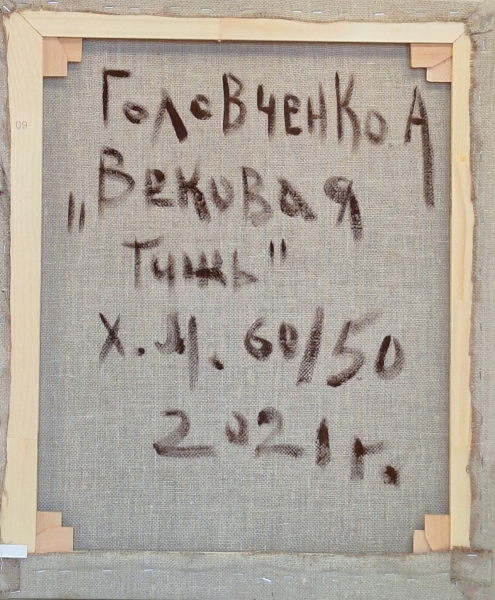 09
Головченко А
"Вековая
тишь"
х.м. 60/50
2021г.